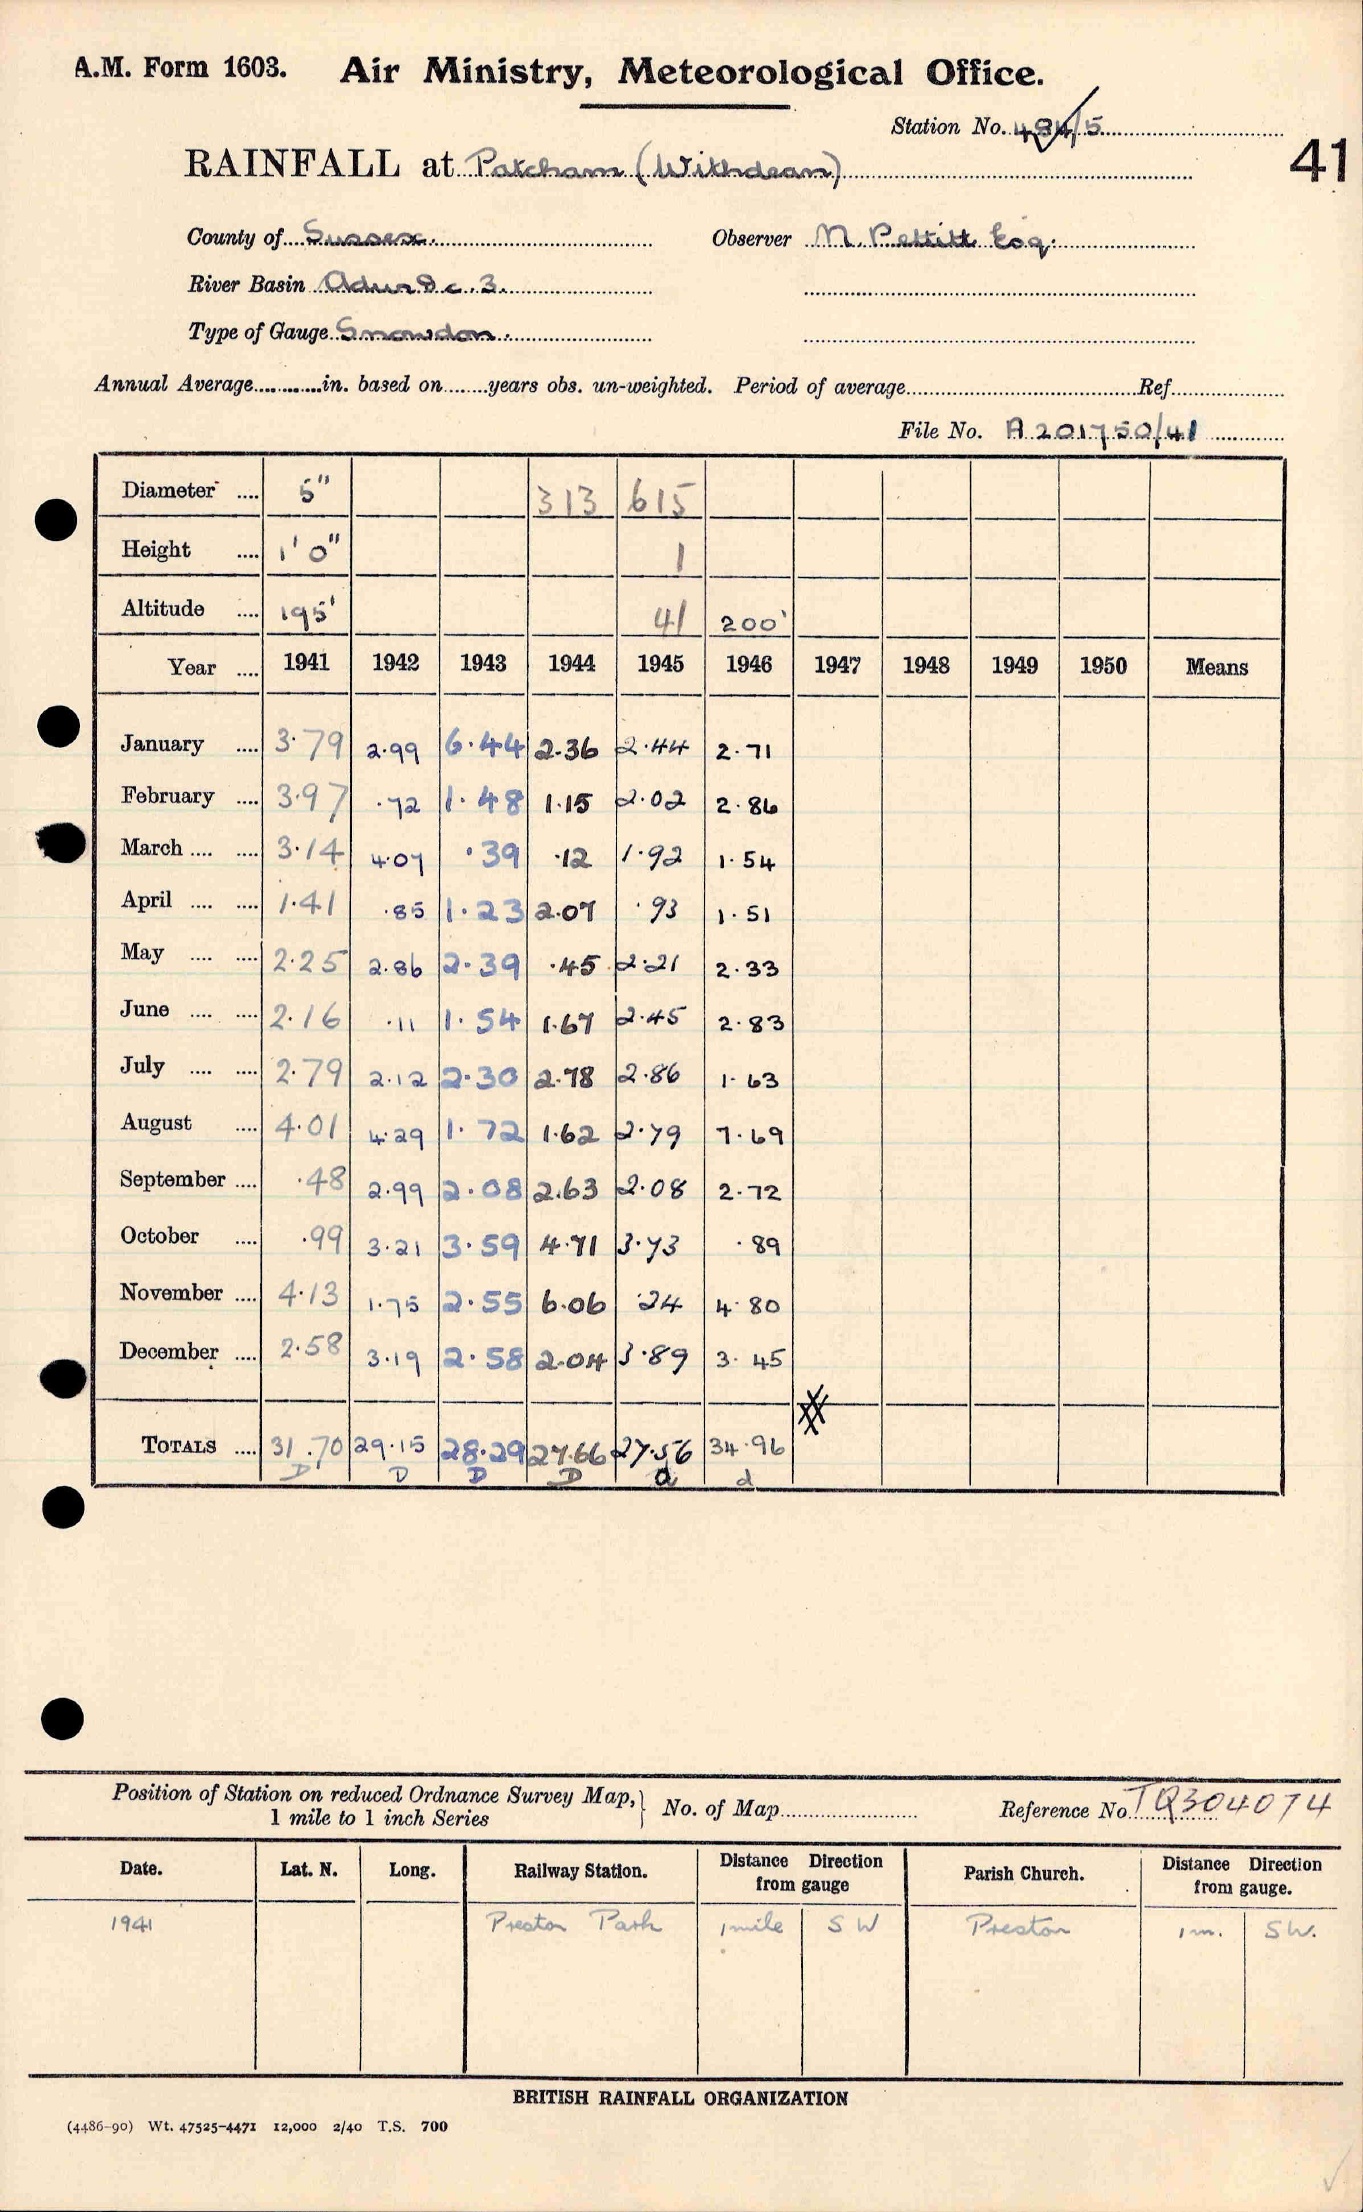 A.M. Form 1603. Air Ministry, Meteorological Office.
Station No. 484/5
41
RAINFALL at Patcham (Withdean)
County of Sussex. Observer N. Pettitt Esq.
River Basin Adur &c. 3.
Type of Gauge Snowdon.
Annual Average............in. based on.......years obs. un-weighted. Period of average.......... Ref..........
File No. A 201750/41
Diameter .... 5" 313 615
Height .... 1' 0" 1
Altitude .... 195' 41 200'
Year .... 1941 1942 1943 1944 1945 1946 1947 1948 1949 1950 Means
January .... 3.79 2.99 6.44 2.36 2.44 2.71
February .... 3.97 .72 1.48 1.15 2.02 2.86
March .... .... 3.14 4.07 .39 .12 1.92 1.54
April .... .... 1.41 .85 1.23 2.07 .93 1.51
May .... .... 2.25 2.86 2.39 .45 2.21 2.33
June .... .... 2.16 .11 1.54 1.67 2.45 2.83
July .... .... 2.79 2.12 2.30 2.78 2.86 1.63
August .... 4.01 4.29 1.72 1.62 2.79 7.69
September .... .48 2.99 2.08 2.63 2.08 2.72
October .... .99 3.21 3.59 4.71 3.73 .89
November .... 4.13 1.75 2.55 6.06 .24 4.80
December .... 2.58 3.19 2.58 2.04 3.89 3.45
TOTALS .... 31.70 29.15 28.29 27.66 27.56 34.96
D D D D a d
Position of Station on reduced Ordnance Survey Map, 1 mile to 1 inch Series } No. of Map.......... Reference No. TQ304074
Date. Lat. N. Long. Railway Station. Distance Direction from gauge Parish Church. Distance Direction from gauge.
1941 Preston Park 1 mile S W Preston 1 m. S W.
BRITISH RAINFALL ORGANIZATION
(4486-90) Wt. 47525-4471 12,000 2/40 T.S. 700